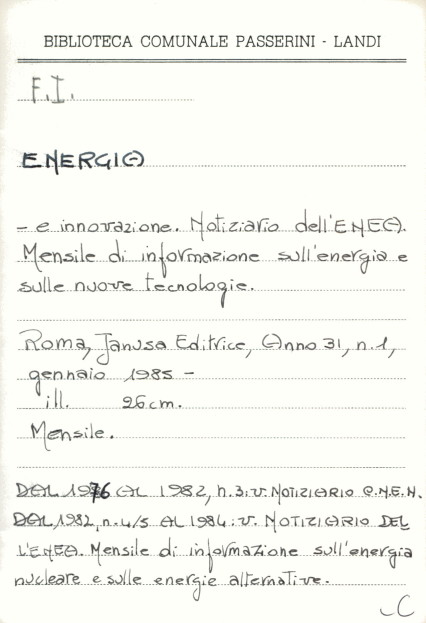 BIBLIOTECA COMUNALE PASSERINI - LANDI
F.I.
ENERGIA
- e innovazione. Notiziario dell'ENEA.
Mensile di informazione sull'energia e
sulle nuove tecnologie.
Roma, Janusa Editrice, Anno 31, n.1,
gennaio 1985 -
ill. 26cm.
Mensile.
DAL 1976 AL 1982, n.3: v. NOTIZIARIO C.N.E.N.
DAL 1982, n.4/5 AL 1984: v. NOTIZIARIO DEL
L'ENEA. Mensile di informazione sull'energia
nucleare e sulle energie alternative.